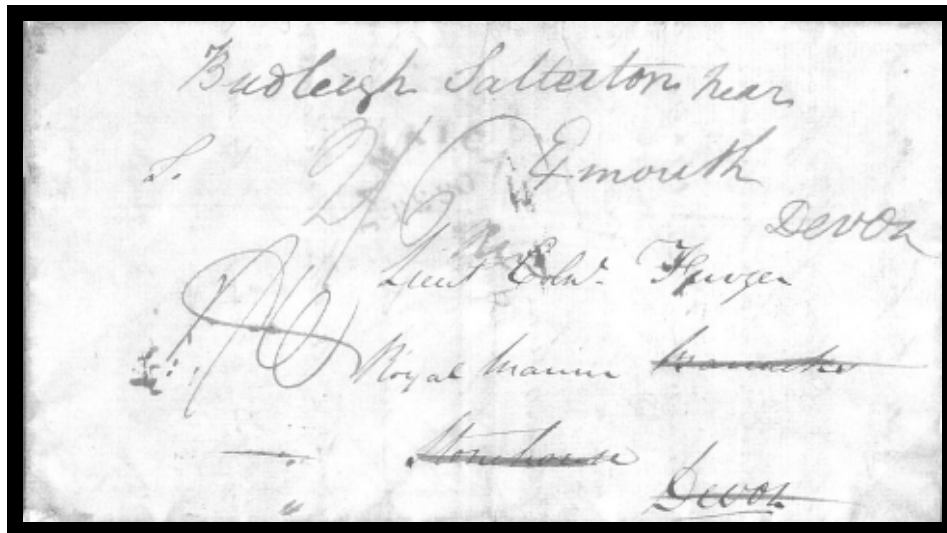 Budleigh Salterton near
Exmouth
Devon
Lieut Edwd.
Royal Marine Barracks
Stonehouse
Devon